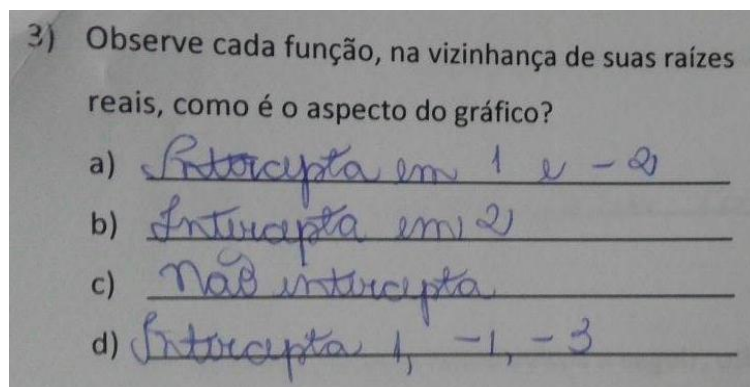 3) Observe cada função, na vizinhança de suas raízes
reais, como é o aspecto do gráfico?
a) Intercepta em 1 e -2
b) Intercepta em 2
c) Não intercepta
d) Intercepta 1, -1, -3